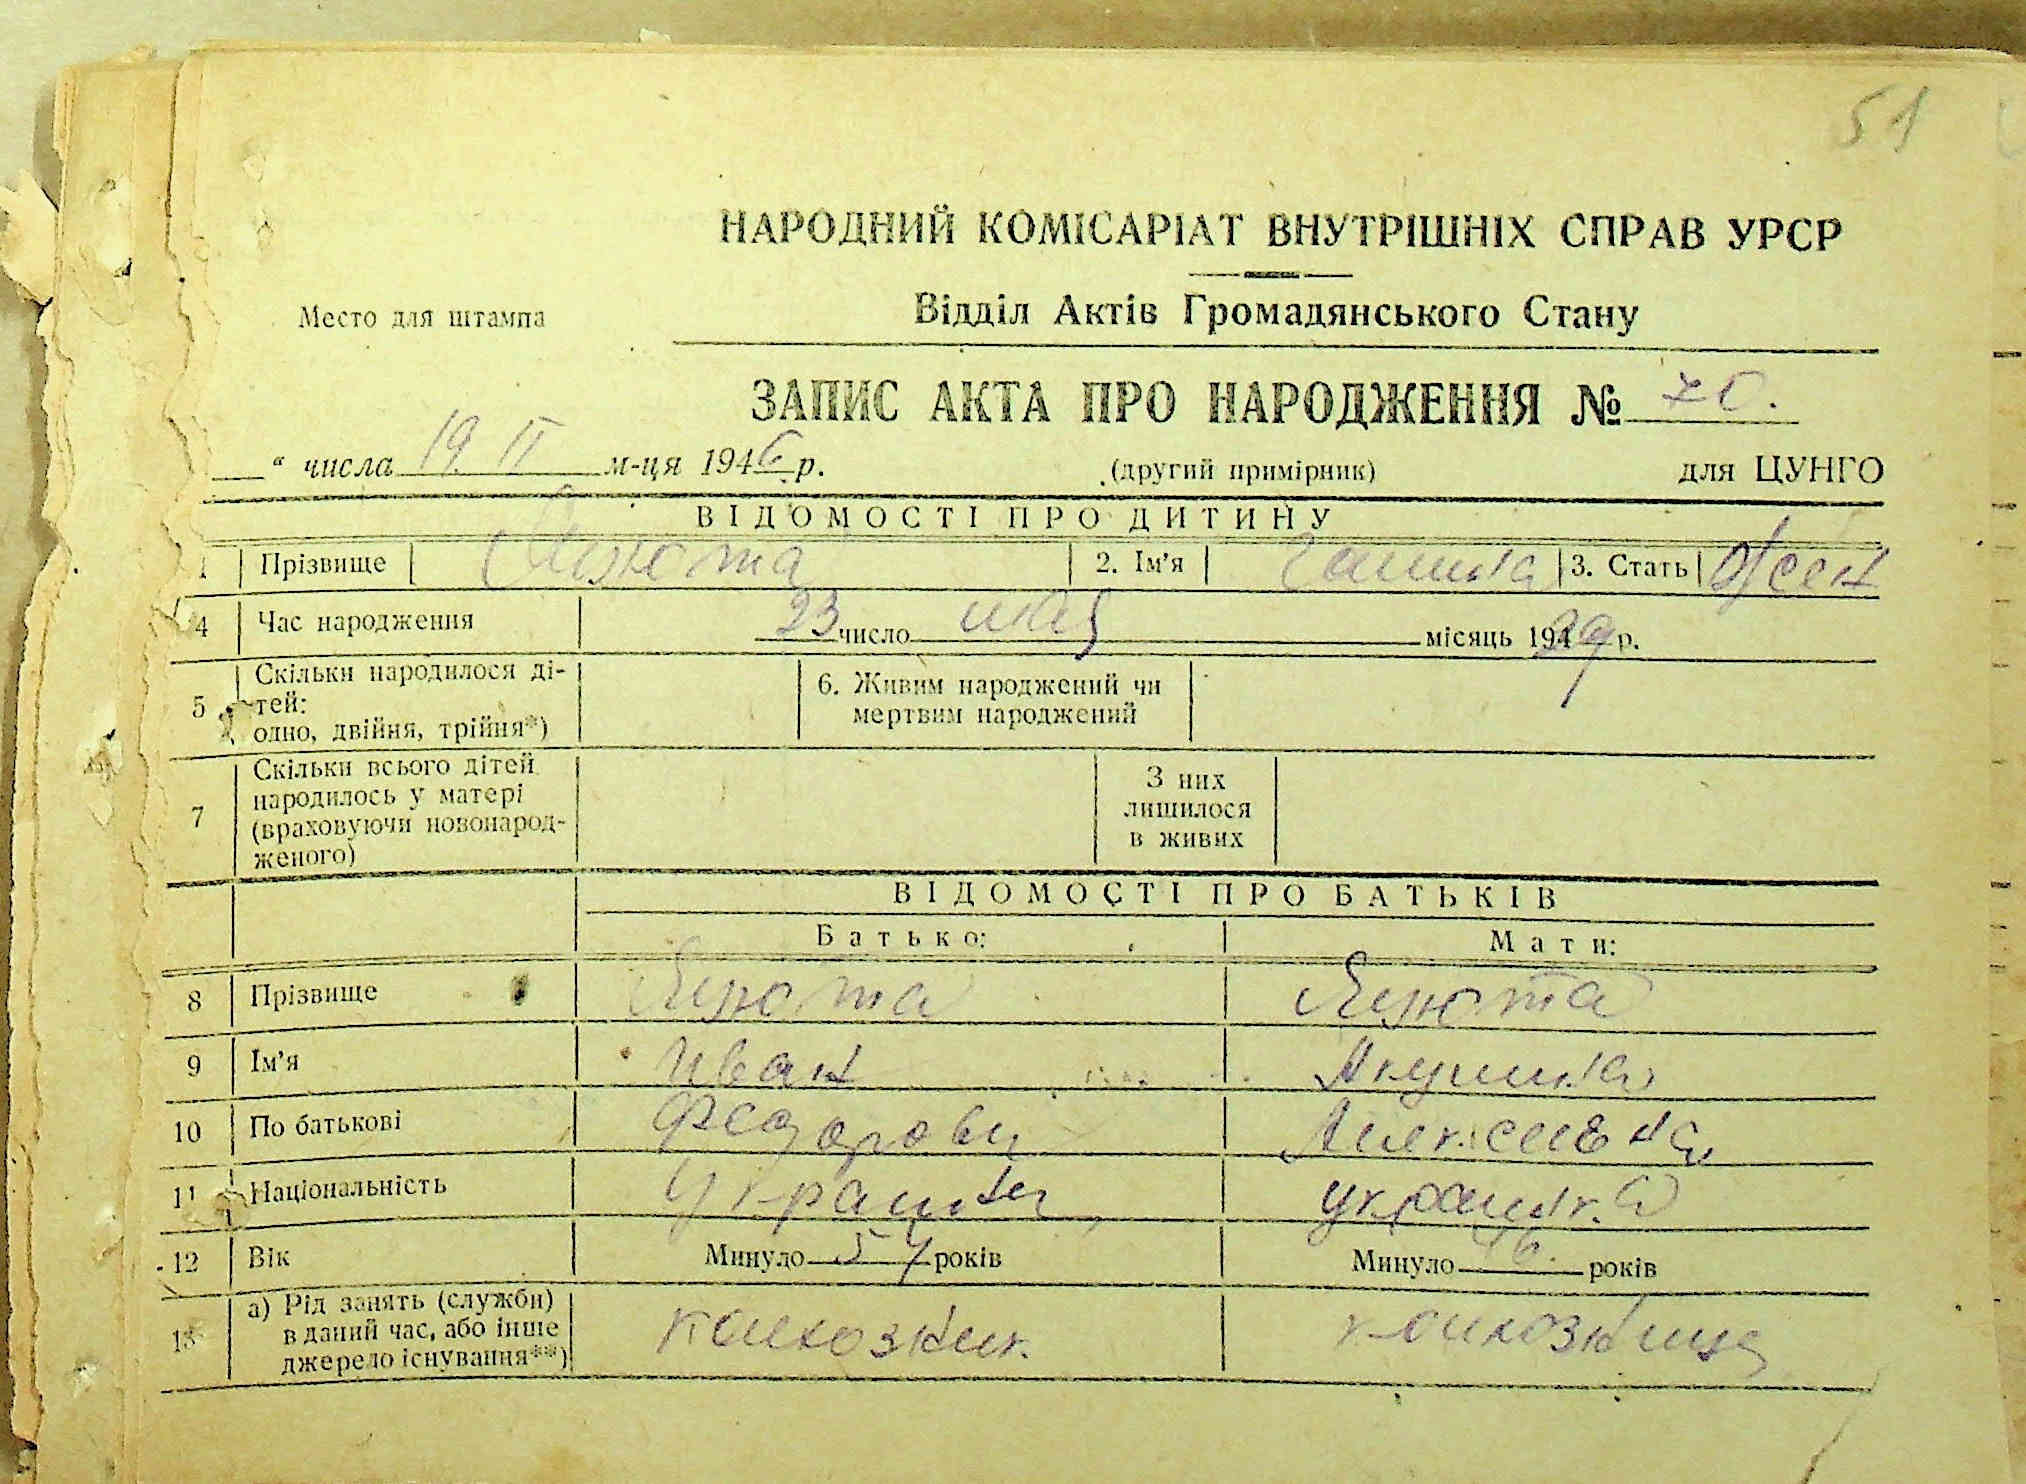 51
НАРОДНИЙ КОМІСАРІАТ ВНУТРІШНІХ СПРАВ УРСР
Место для штампа
Відділ Актів Громадянського Стану
ЗАПИС АКТА ПРО НАРОДЖЕННЯ № 70.
“ числа 19. II м-ця 1946 р. (другий примірник) для ЦУНГО
ВІДОМОСТІ ПРО ДИТИНУ
1 Прізвище 2. Ім'я Галина 3. Стать Жен
4 Час народження 23 число мая місяць 194 39 р.
5 Скільки народилося ді-
тей:
одно, двійня, трійня*)
6. Живим народжений чи
мертвим народжений
7 Скільки всього дітей
народилось у матері
(враховуючи новонарод-
женого)
З них
лишилося
в живих
ВІДОМОСТІ ПРО БАТЬКІВ
Батько: Мати:
8 Прізвище
9 Ім'я Иван Акулина
10 По батькові Федорович Алексеевна
11 Національність Украинец украинка
12 Вік Минуло 54 років Минуло 46. років
13 а) Рід занять (служби)
в даний час, або інше
джерело існування**)
колхозник колхозница